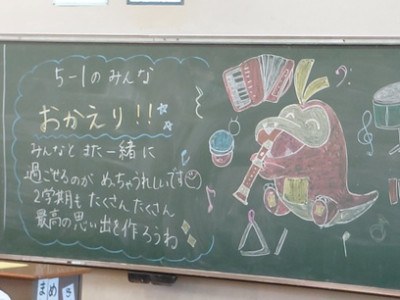 5-1のみんな
おかえり!!
みんなと また一緒に
過ごせるのが めっちゃうれしいです
2学期も たくさんたくさん
最高の思い出を作ろうね
まめ